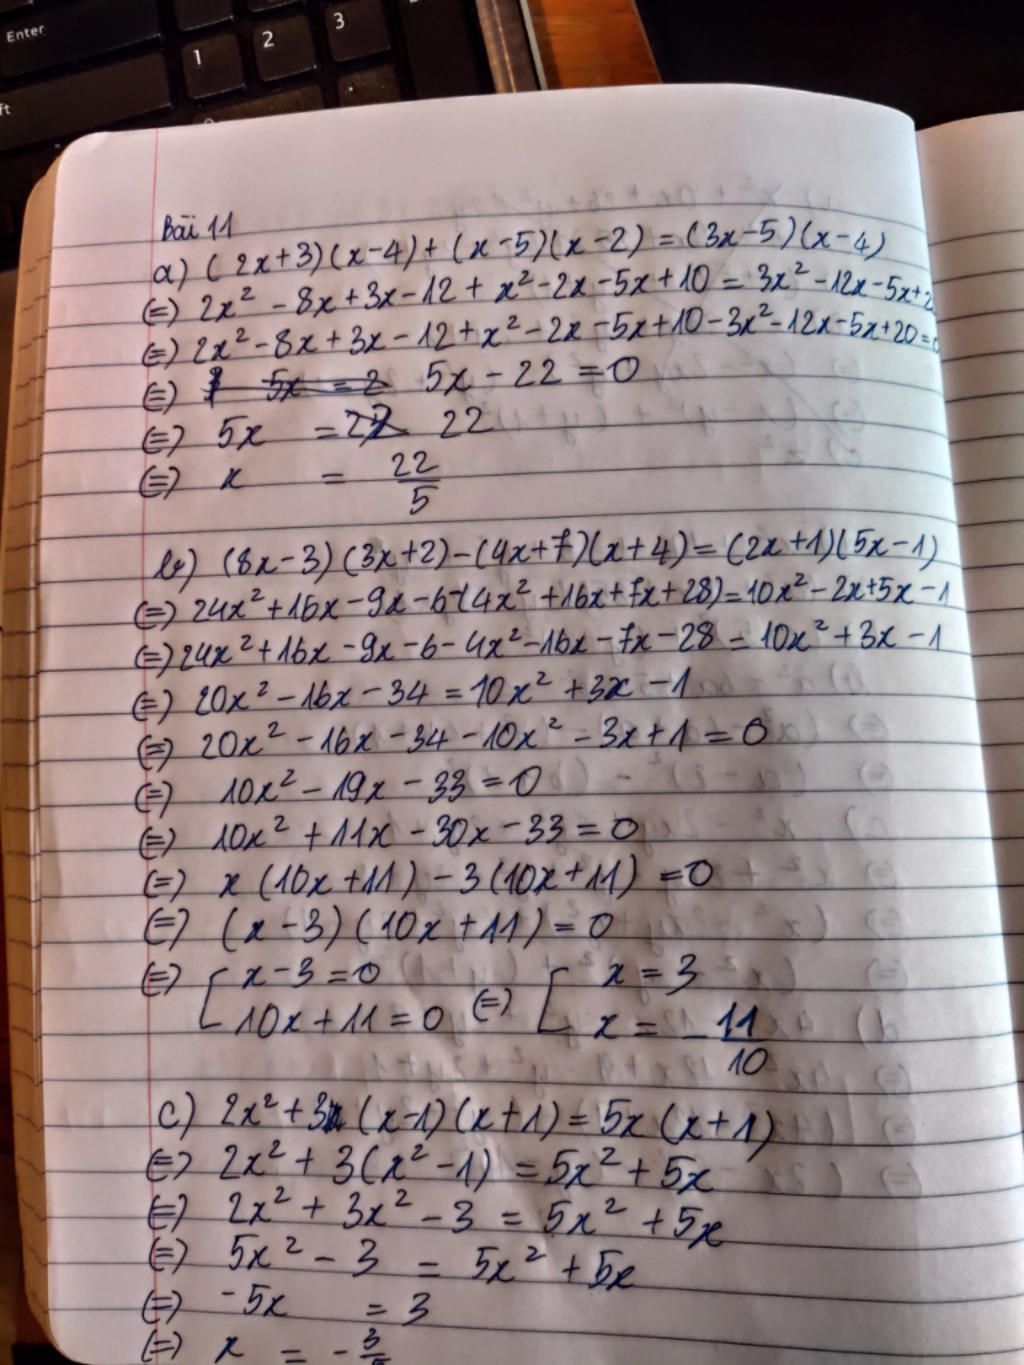 Enter
1
2
3
Bài 11
a) (2x+3)(x-4)+(x-5)(x-2)=(3x-5)(x-4)
(=) 2x² - 8x+3x-12+x²-2x-5x+10=3x²-12x-5x+2
(=) 2x²-8x+3x-12+x²-2x-5x+10-3x²-12x-5x+20=0
(=) 5x = 2 5x-22=0
(=) 5x = 22
(=) x = 22/5
b) (8x-3)(3x+2)-(4x+7)(x+4)=(2x+1)(5x-1)
(=) 24x²+16x-9x-6-(4x²+16x+7x+28)=10x²-2x+5x-1
(=) 24x²+16x-9x-6-4x²-16x-7x-28=10x²+3x-1
(=) 20x²-16x-34=10x²+3x-1
(=) 20x²-16x-34-10x²-3x+1=0
(=) 10x²-19x-33=0
(=) 10x²+11x-30x-33=0
(=) x(10x+11)-3(10x+11)=0
(=) (x-3)(10x+11)=0
(=) [ x-3=0 (=) [ x=3
10x+11=0 x=-11/10
c) 2x²+3(x-1)(x+1)=5x(x+1)
(=) 2x²+3(x²-1)=5x²+5x
(=) 2x²+3x²-3=5x²+5x
(=) 5x²-3=5x²+5x
(=) -5x = 3
(=) x = -3/5